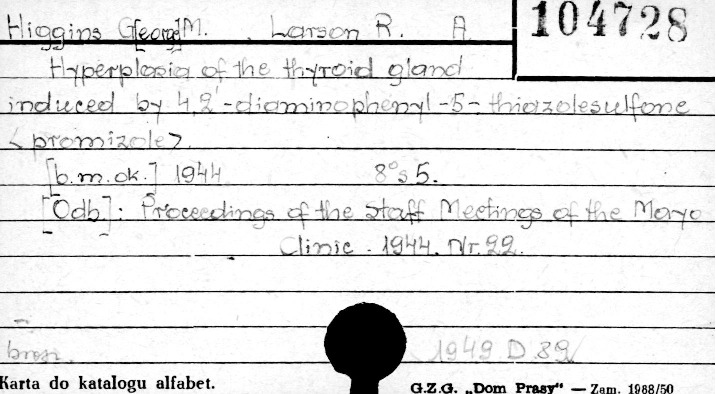 Higgins G[eorge] M. , Larson R. A.
104728
Hyperplasia of the thyroid gland
induced by 4,2'-diaminophenyl-5-thiazolesulfone
<promizole>.
[b.m.ok.] 1944 8° s 5.
[Odb]: Proceedings of the Staff Meetings of the Mayo
Clinic. 1944. Nr. 22.
brosz. 1949 D 89/
Karta do katalogu alfabet. G.Z.G. „Dom Prasy" — Zam. 1968/50